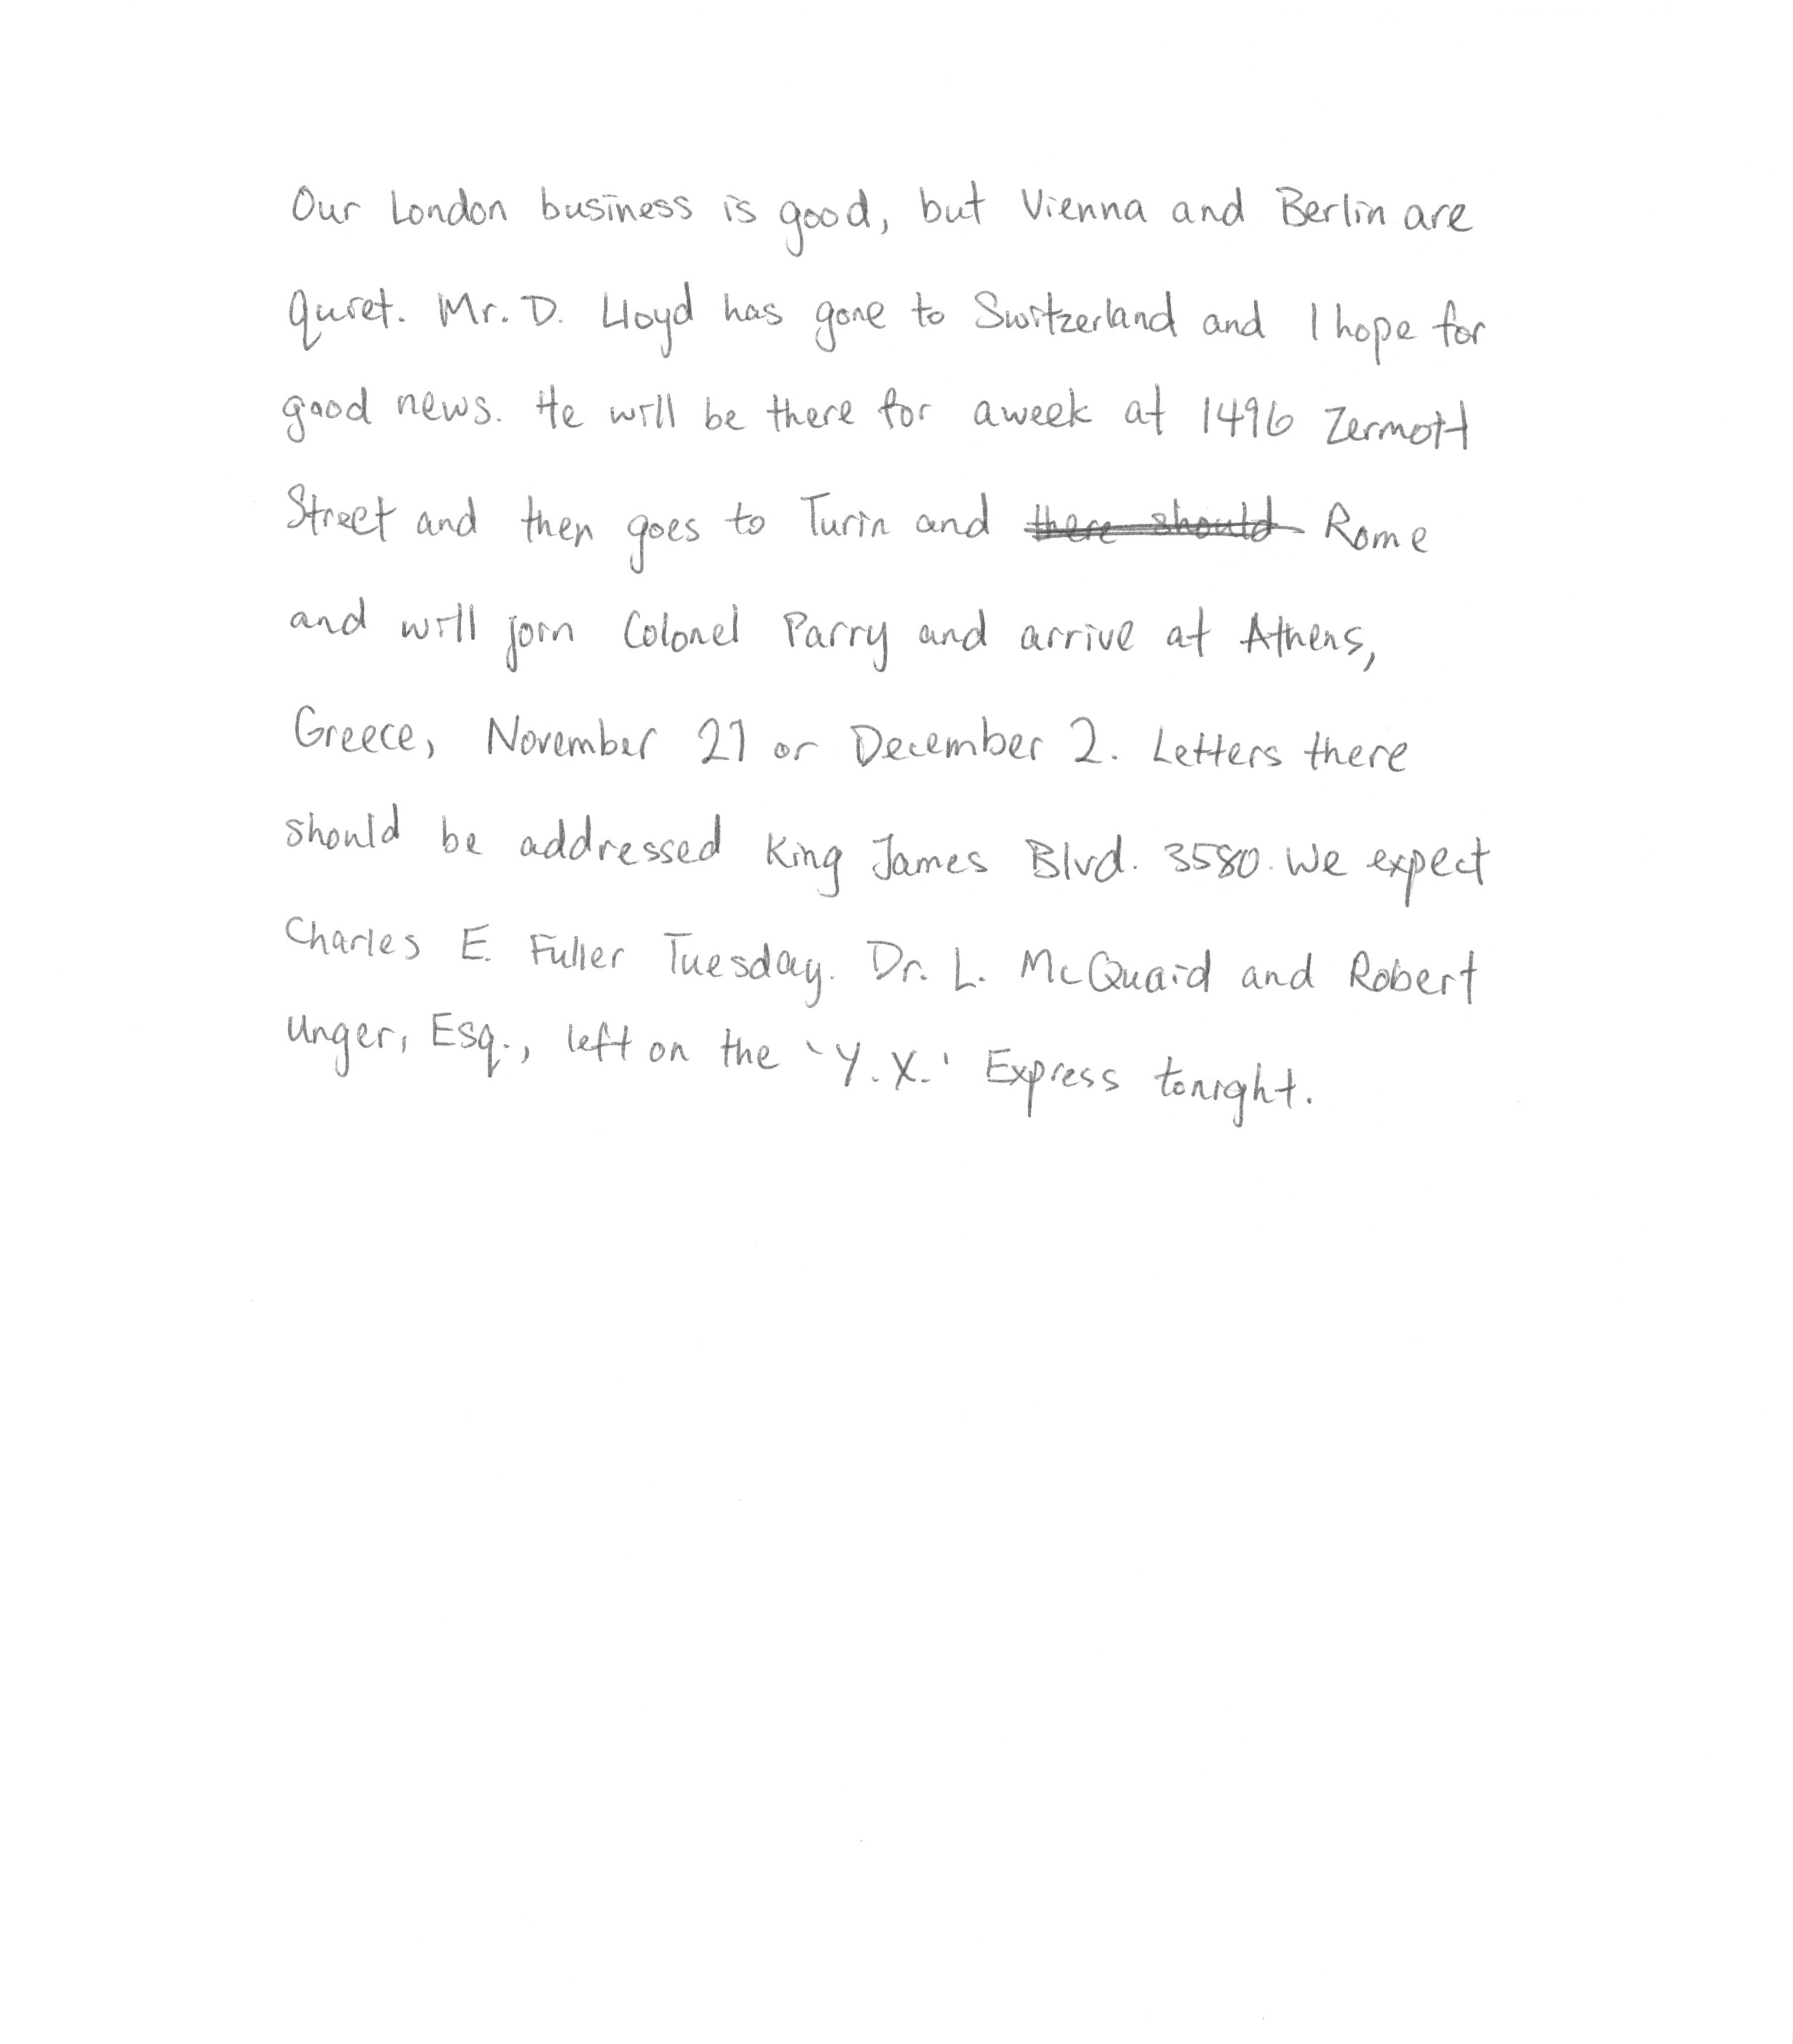 Our London business is good, but Vienna and Berlin are
quiet. Mr. D. Lloyd has gone to Switzerland and I hope for
good news. He will be there for a week at 1496 Zermott
Street and then goes to Turin and there should Rome
and will join Colonel Parry and arrive at Athens,
Greece, November 27 or December 2. Letters there
should be addressed King James Blvd. 3580. We expect
Charles E. Fuller Tuesday. Dr. L. McQuaid and Robert
Unger, Esq., left on the 'Y.X.' Express tonight.